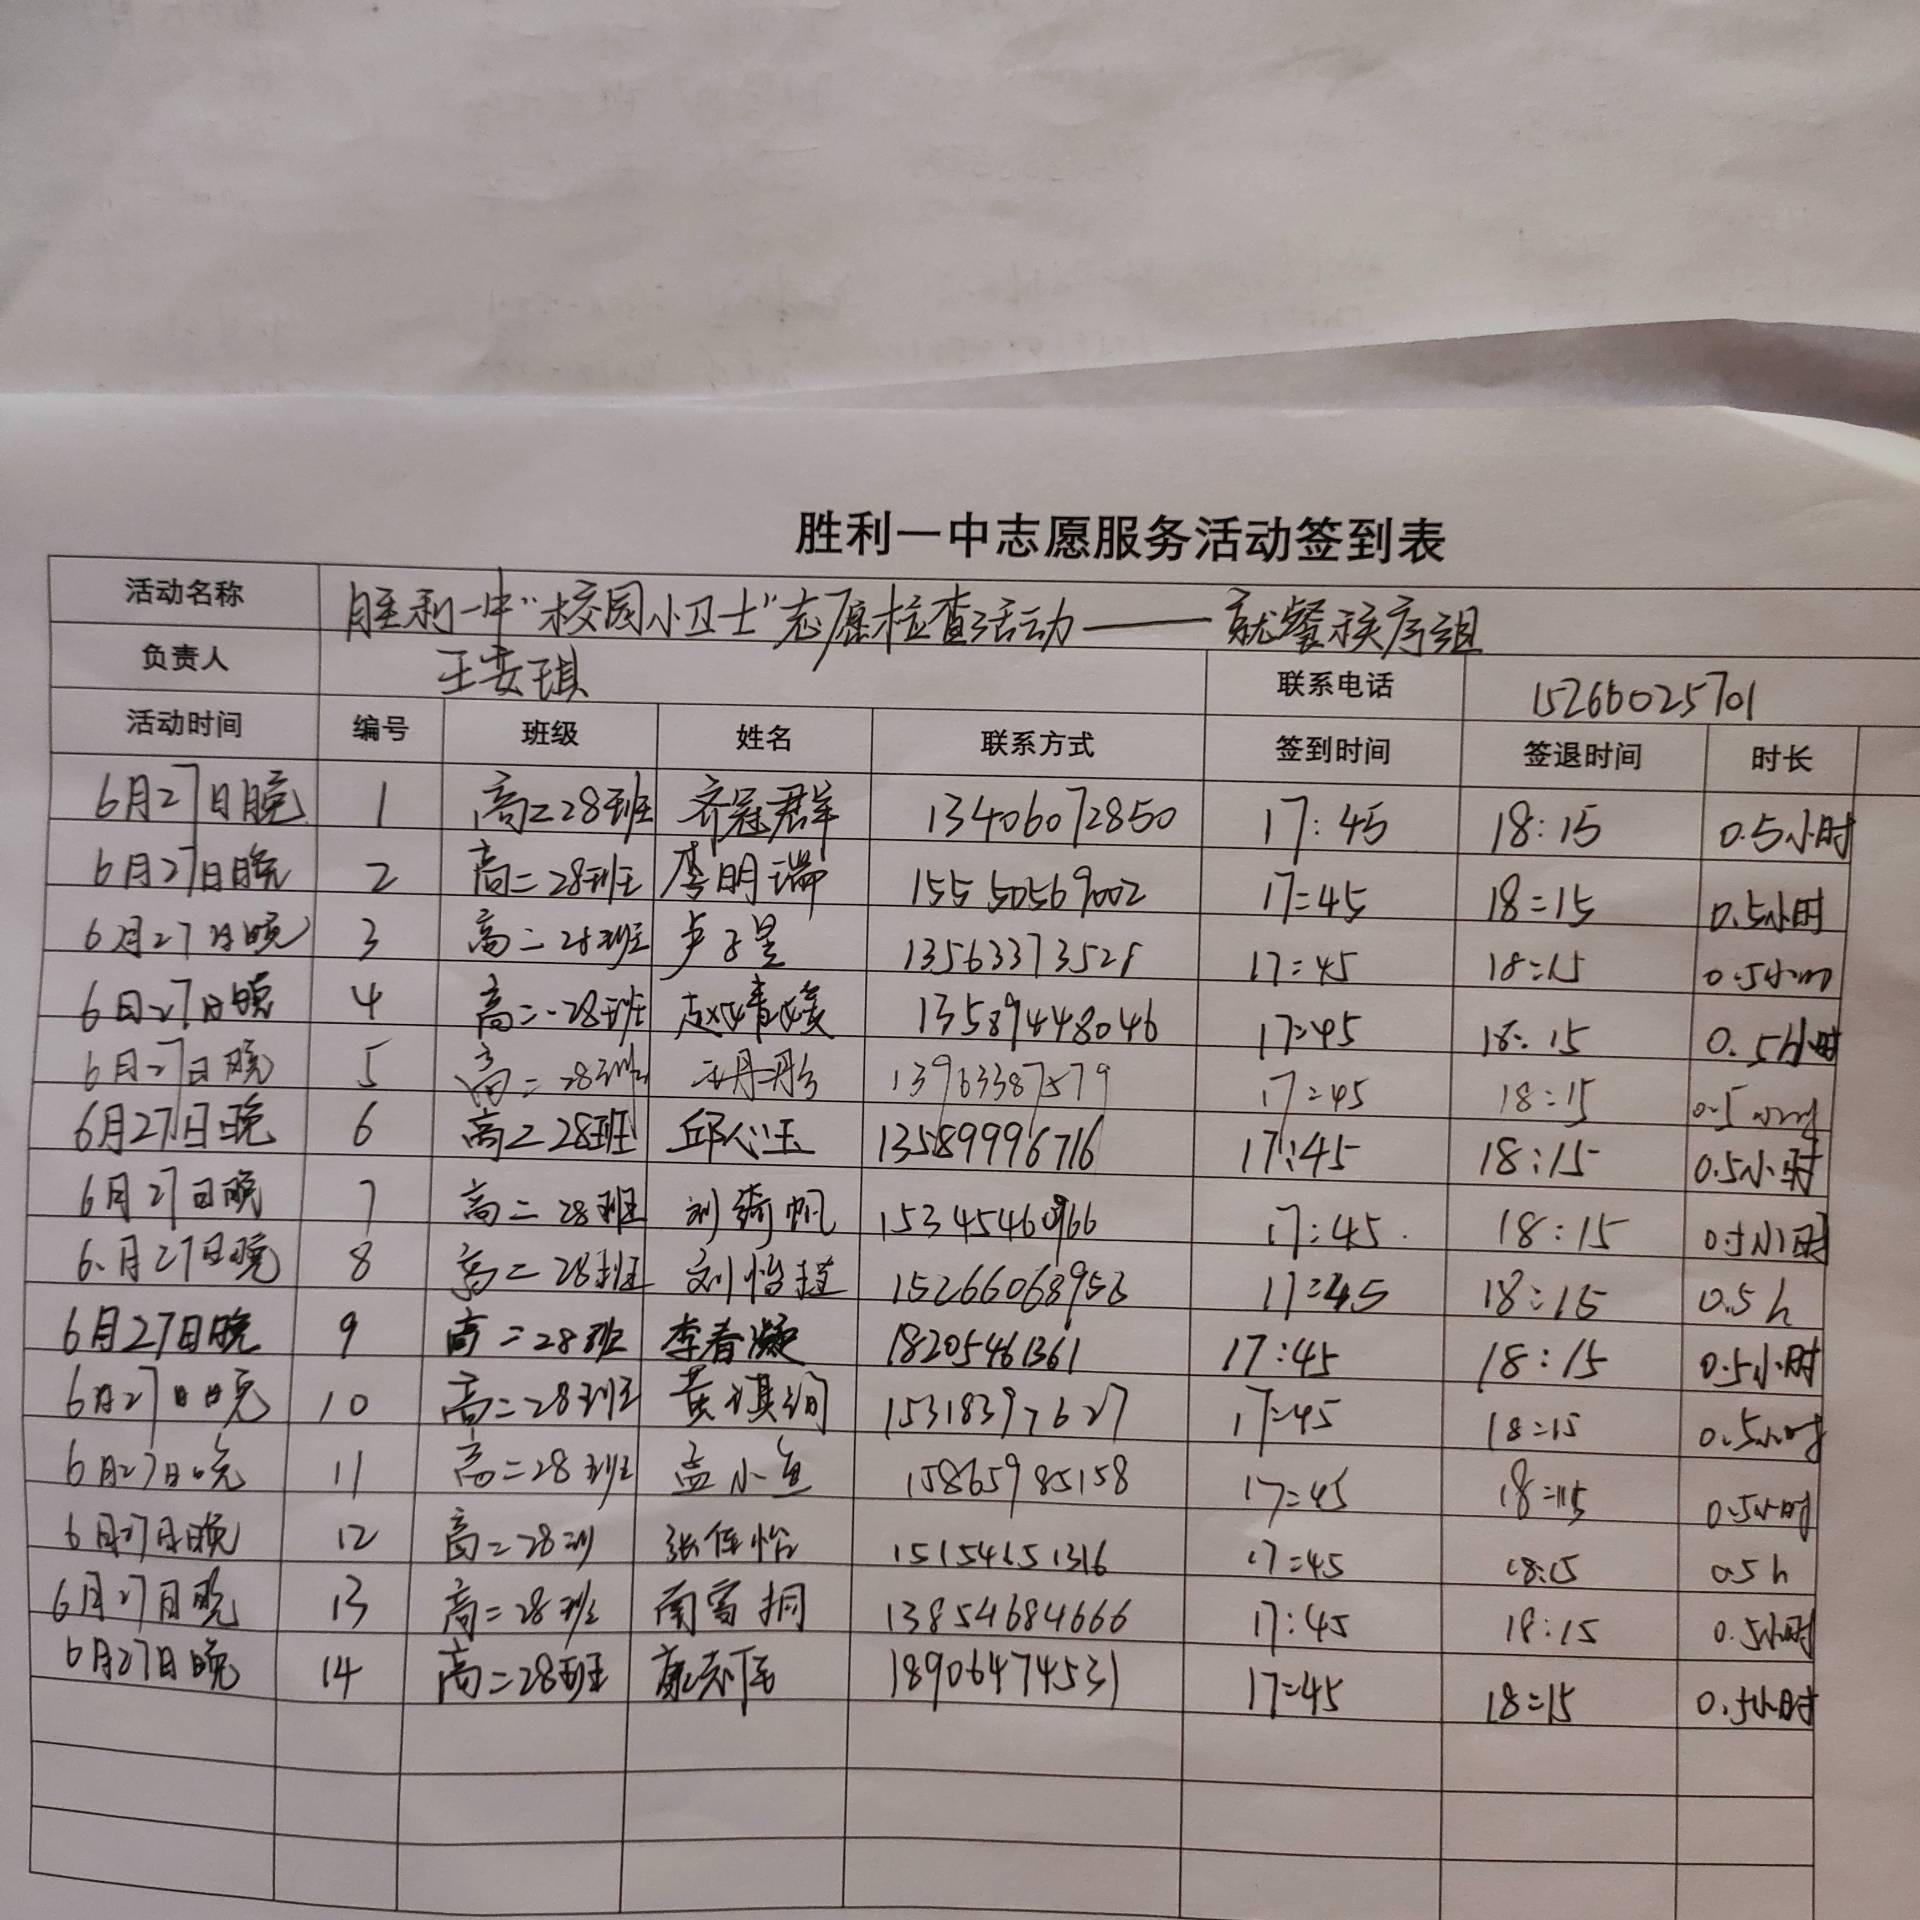 胜利一中志愿服务活动签到表
活动名称 胜利一中"校园小卫士"志愿检查活动——就餐秩序组
负责人 王安琪 联系电话 15266025701
活动时间 编号 班级 姓名 联系方式 签到时间 签退时间 时长
6月27日晚 1 高二28班 齐冠群 13406072850 17:45 18:15 0.5小时
6月27日晚 2 高二28班 李明瑞 15550569002 17:45 18:15 0.5小时
6月27日晚 3 高二28班 卢子昱 17:45 18:15
6日27日晚 4 高二28班 赵婧媛 13589448046 17:45 18:15 0.5小时
6月27日晚 5 高二28班 13963387579 17:45 18:15
6月27日晚 6 高二28班 邱心玉 13589996716 17:45 18:15 0.5小时
6月27日晚 7 高二28班 刘绮帆 15345460966 17:45 18:15 0.5小时
6月27日晚 8 高二28班 17:45 18:15 0.5h
6月27日晚 9 高二28班 李春凝 18205461361 17:45 18:15 0.5小时
6月27日晚 10 高二28班 15318397627 17:45 18:15 0.5小时
6月27日晚 11 高二28班 孟小鱼 15865985158 17:45 18:15 0.5小时
6月27日晚 12 高二28班 张佳怡 15154651316 17:45 18:15 0.5h
6月27日晚 13 高二28班 南雪桐 13854684666 17:45 18:15 0.5小时
6月27日晚 14 高二28班 18906474531 17:45 18:15 0.5小时